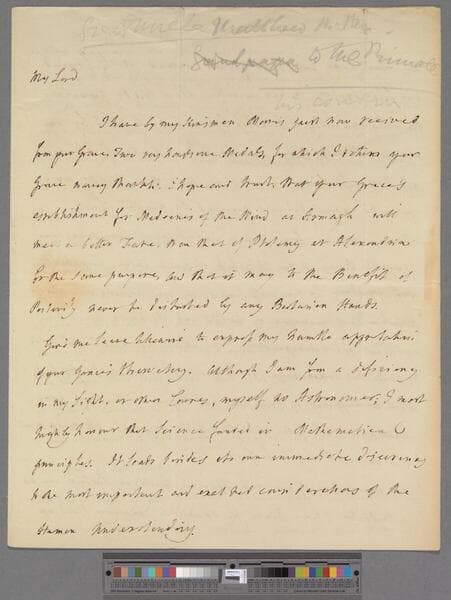 Matthew
to the Primate
his cousin
My Lord
I have by my Kinsman Morris just now received
from your Grace, Two very handsome Medals, for which I return your
Grace many thanks. I hope and trust, that your Grace's
establishment for Medicines of the Mind at Armagh will
meet a better Fate, than that of Ptolemy at Alexandria
for the same purpose, and that it may to the Benefit of
Posterity never be disturbed by any Barbarian Hands.
Give me leave likewise to express my humble approbation
of your Grace's Observatory. Although I am from a deficiency
in my Sight, or other Causes, myself no Astronomer, I most
highly honour that Science founded in Mathematical
principles. It leads besides its own immediate discoveries
to the most important and exalted considerations of the
Human Understanding.